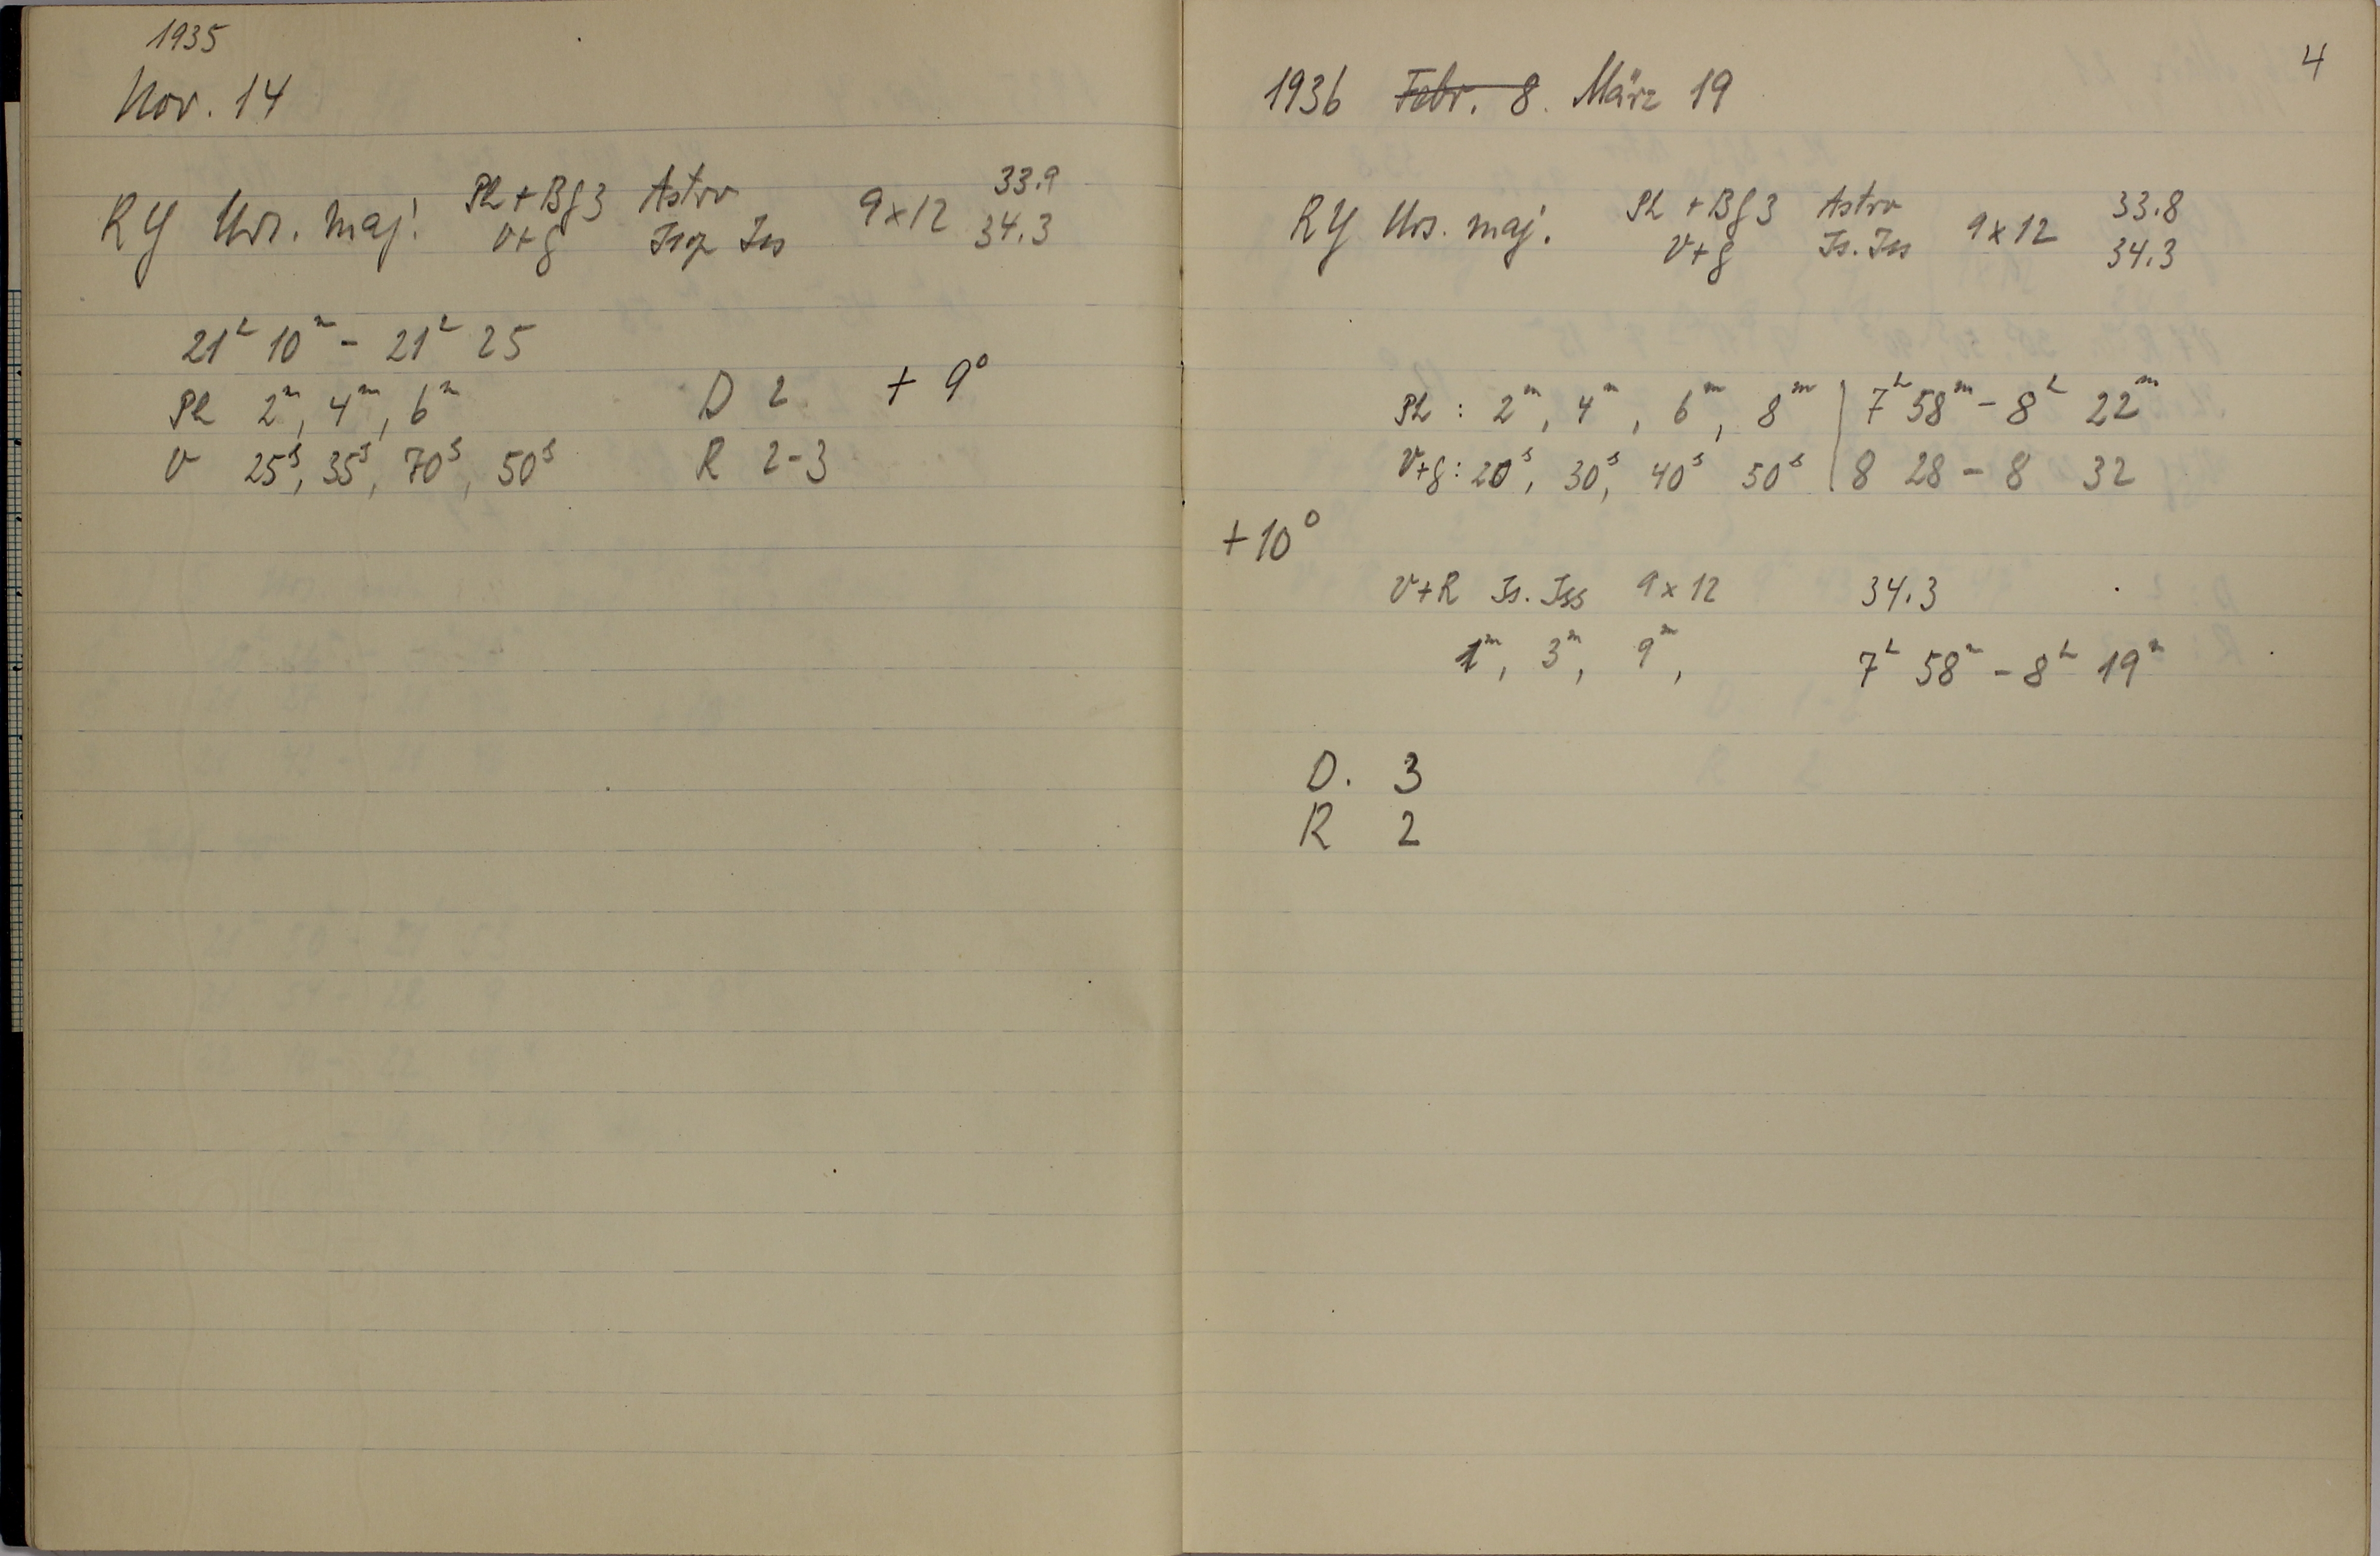 1935
Nov. 14
RY Urs. maj. Ph + Bg3 Astro 9x12 33.9
V+g Isop Iss 34.3
21ʰ 10ᵐ - 21ʰ 25
Ph 2ᵐ, 4ᵐ, 6ᵐ D 2 + 9°
V 25ˢ, 35ˢ, 70ˢ, 50ˢ R 2-3
4
1936 Febr. 8. März 19
RY Urs. maj. Ph + Bg3 Astro 9x12 33.8
V+g Is. Iss 34.3
Ph : 2ᵐ, 4ᵐ, 6ᵐ, 8ᵐ | 7ʰ 58ᵐ - 8ʰ 22ᵐ
V+g : 20ˢ, 30ˢ, 40ˢ 50ˢ | 8 28 - 8 32
+10°
V+R Is. Iss 9x12 34.3
1ᵐ, 3ᵐ, 9ᵐ, 7ʰ 58ᵐ - 8ʰ 19ᵐ
D. 3
R 2